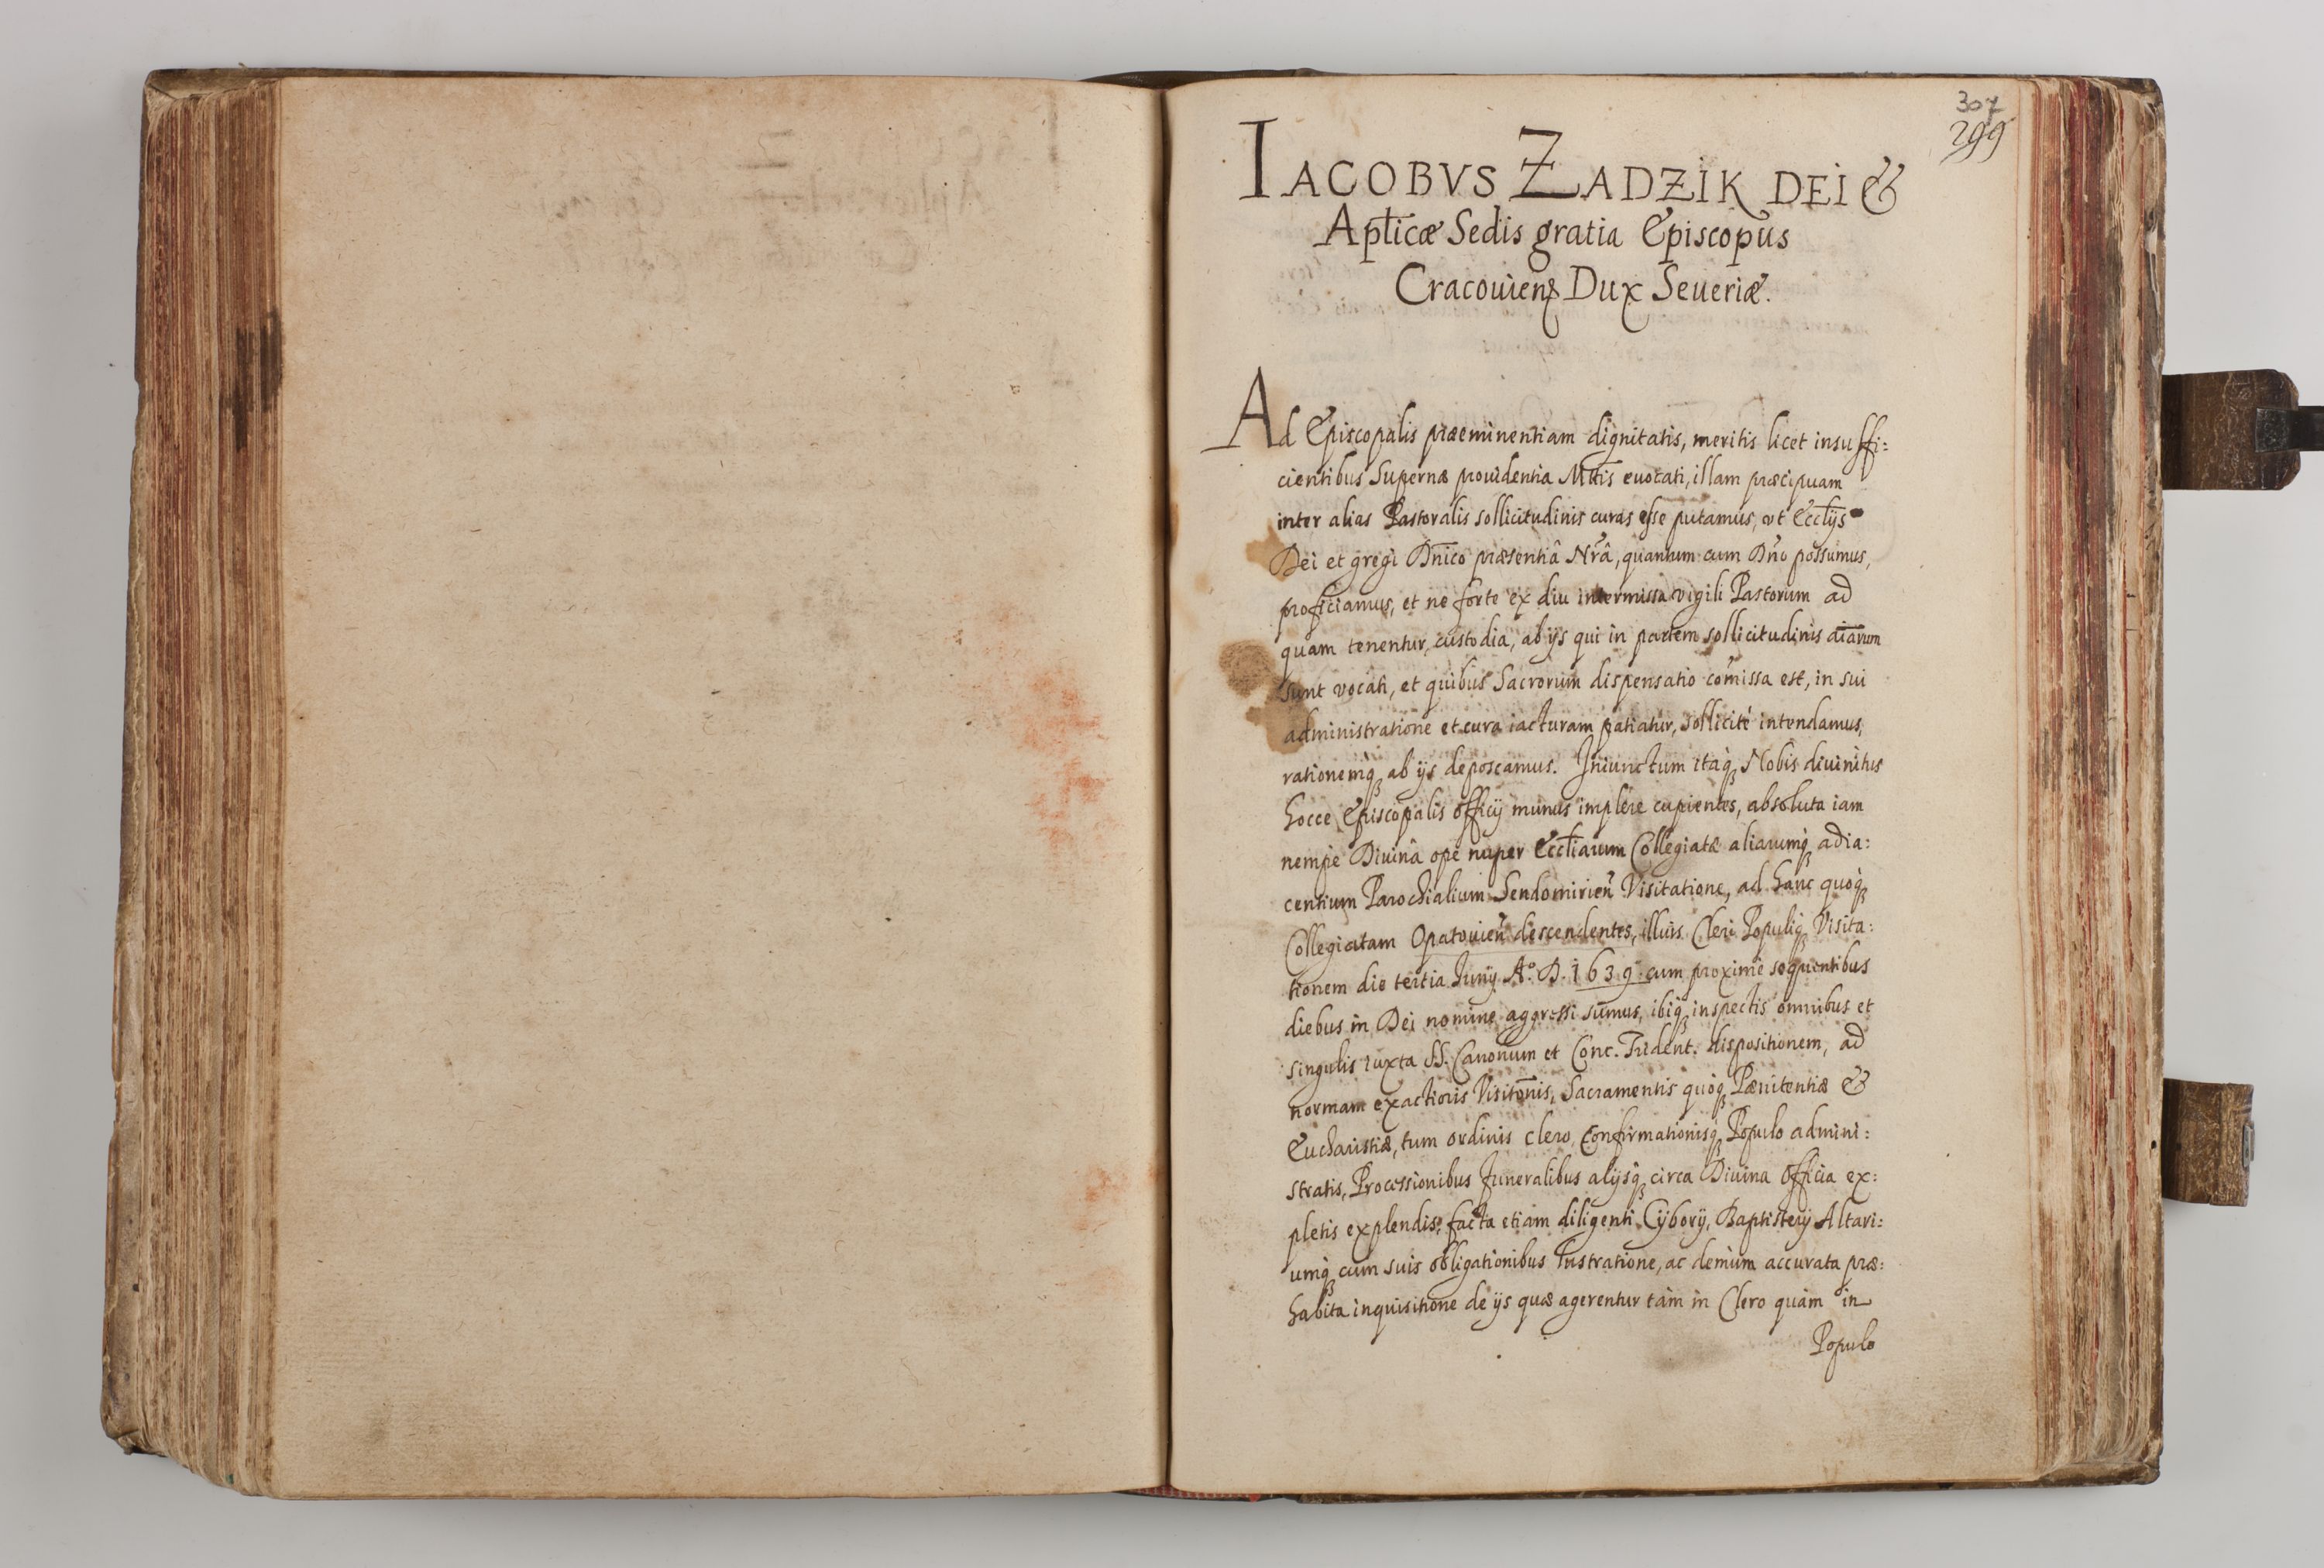 307
299
IACOBVS ZADZIK DEI &
Aplicæ Sedis gratia Episcopus
Cracouien Dux Seueriæ.
Ad Episcopalis præeminentiam dignitatis, meritis licet insuffi:
cientibus Supernæ prouidentia Mttis euocati, illam præcipuam
inter alias Pastoralis sollicitudinis curas esse putamus, vt Eccliys
Dei et gregi Dnico præsentiâ Nrâ, quantum cum Dno possumus,
proficiamus, et ne forte ex diu intermissa vigili Pastorum ad
quam tenentur, custodia, ab ijs qui in partem sollicitudinis aiarum
sunt vocati, et quibus Sacrorum dispensatio comissa est, in sui
administratione et cura iacturam patiatur, sollicitè intendamus,
rationemq ab ijs deposcamus. Iniunctum itaq Nobis diuinitus
hocce Episcopalis officij munus implere cupientes, absoluta iam
nempe Diuinâ ope nuper Eccliarum Collegiatæ aliarumq adia:
centium Parochialium Sendomirien Visitatione, ad hanc quoq
Collegiatam Opatouien descendentes, illius Cleri Populiq Visita:
tionem die tertia Iunij A.º D. 1639. cum proximè sequentibus
diebus in Dei nomine aggressi sumus, ibiq inspectis omnibus et
singulis iuxta SS. Canonum et Conc. Trident. dispositionem, ad
normam exactioris Visitonis, Sacramentis quoq Pænitentiæ &
Eucharistiæ, tum ordinis clero, Confirmationisq Populo admini:
stratis, Processionibus funeralibus alijsq circa Diuina officia ex:
pletis explendis, facta etiam diligenti Cyborij, Baptisterij Altari:
umq cum suis obligationibus lustratione, ac demum accurata præ:
habita inquisitione de ijs quæ agerentur tàm in Clero quàm in
Populo